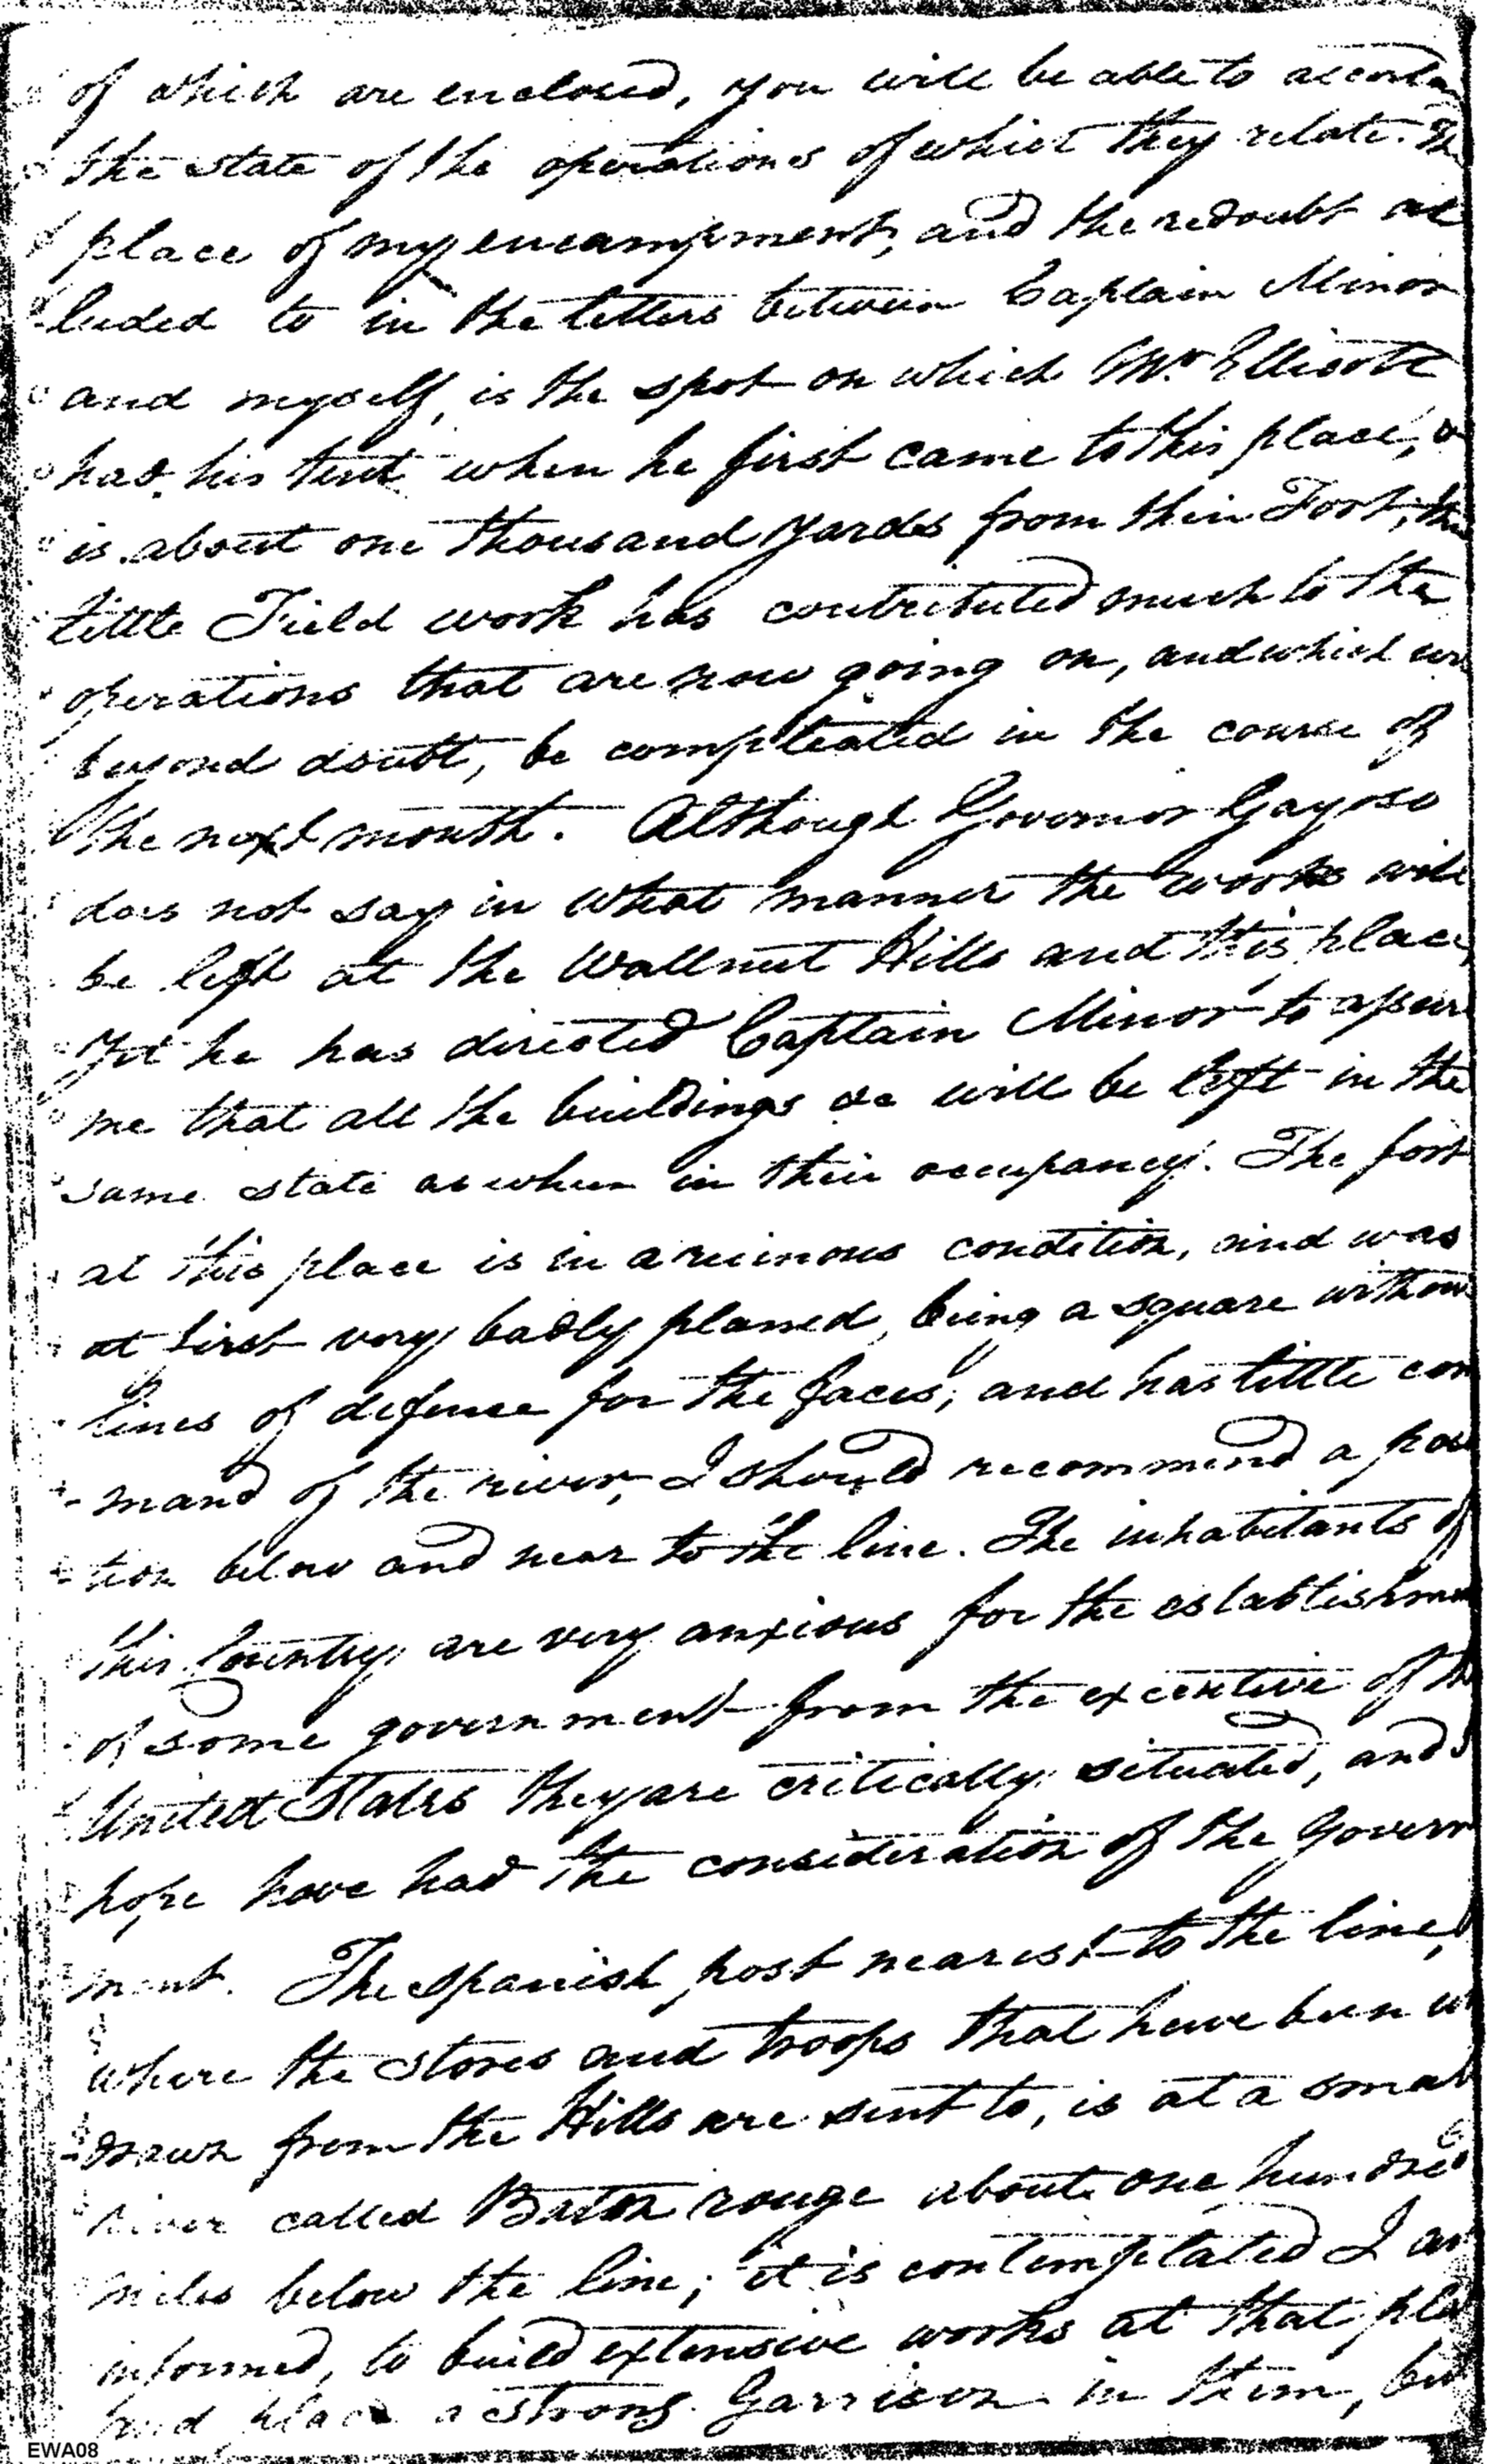 of which are enclosed, you will be able to
the state of the operations of which they relate. Th
place of my encampment, and the redoubt al
luded to in the letters between Captain Minor
and myself, is the spot on which Mr. Ellicott
had his tent when he first came to this place,
is about one thousand yards from their Fort, this
little Field work has contributed much to the
operations that are now going on, and which
beyond doubt, be compleated in the course of
the next month. Although Governor Gayoso
does not say in what manner the works will
be left at the Wallnut Hills and this place,
yet he has directed Captain Minor to assure
me that all the buildings &c will be left in the
same state as when in their occupancy. The fort
at this place is in a ruinous condition, and was
at first very badly planed, being a square withou
lines of defense for the faces, and has little com
-mand of the river, I should recommend a posi
-tion below and near to the line. The inhabitants of
this Country are very anxious for the establishmen
of some government from the executive of th
United States they are critically situated, and I
hope have had the consideration of the Govern
ment. The Spanish post nearest to the line,
where the stores and troops that have been
-drawn from the Hills are sent to, is at a small
river called Baton rouge about one hundred
miles below the line; it is contemplated I am
informed, to build extensive works at that pla
and place a strong Garrison in them, but
EWA08